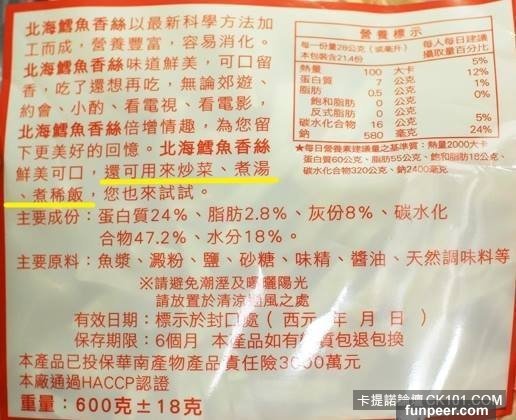 北海鱈魚香絲以最新科學方法加
工而成，營養豐富，容易消化。
北海鱈魚香絲味道鮮美，可口留
香，吃了還想再吃，無論郊遊、
約會、小酌、看電視、看電影，
北海鱈魚香絲倍增情趣，為您留
下更美好的回憶。北海鱈魚香絲
鮮美可口，還可用來炒菜、煮湯
、煮稀飯，您也來試試。
營養標示
每一份量28公克（或毫升） 每人每日建議
本包裝含21.4份 攝取量百分比
熱量 100 大卡 5%
蛋白質 7 公克 12%
脂肪 0.5 公克 1%
飽和脂肪 0 公克 0%
反式脂肪 0 公克
碳水化合物 16 公克 5%
鈉 580 毫克 24%
★每日營養素建議量之基準質：熱量2000大卡
蛋白質60公克、脂肪55公克、飽和脂肪18公克、
碳水化合物320公克、鈉2400毫克
主要成份：蛋白質24%、脂肪2.8%、灰份8%、碳水化
合物47.2%、水分18%。
主要原料：魚漿、澱粉、鹽、砂糖、味精、醬油、天然調味料等
※請避免潮溼及曝曬陽光
請放置於清涼通風之處
有效日期：標示於封口處（西元 年 月 日）
保存期限：6個月 本產品如有變質包退包換
本產品已投保華南產物產品責任險3000萬元
本廠通過HACCP認證
重量：600克±18克
卡提諾論壇 CK101.COM
funpeer.com